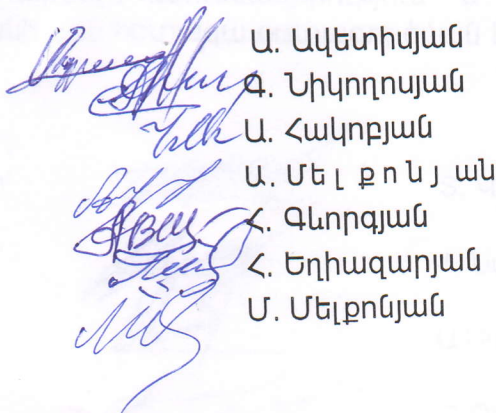 Ա. Ավետիսյան
Գ. Նիկողոսյան
Ա. Հակոբյան
Ա. Մելքոնյան
Հ. Գևորգյան
Հ. Եղիազարյան
Մ. Մելքոնյան